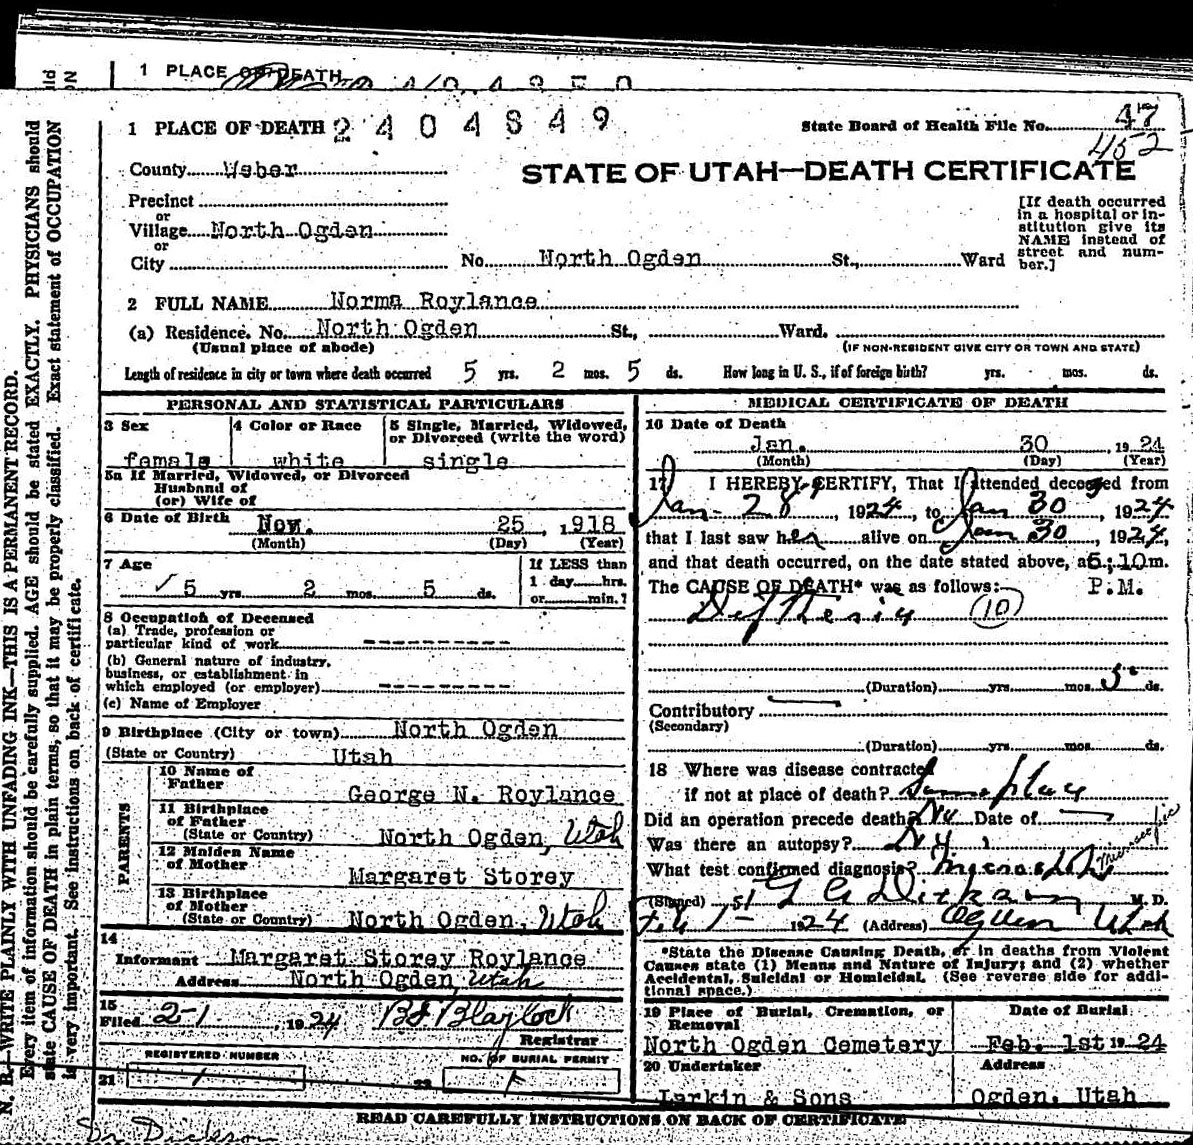 1 PLACE OF DEATH
1 PLACE OF DEATH 2404849
State Board of Health File No. 47
452
County Weber
STATE OF UTAH—DEATH CERTIFICATE
Precinct
or
Village North Ogden
or
City
No North Ogden St., Ward
[If death occurred
in a hospital or in-
stitution give its
NAME instead of
street and num-
ber.]
2 FULL NAME Norma Roylance
(a) Residence. No. North Ogden St., Ward.
(Usual place of abode)
(IF NON-RESIDENT GIVE CITY OR TOWN AND STATE)
Length of residence in city or town where death occurred 5 yrs. 2 mos. 5 ds. How long in U. S., if of foreign birth? yrs. mos. ds.
PERSONAL AND STATISTICAL PARTICULARS
3 Sex
female
4 Color or Race
white
5 Single, Married, Widowed,
or Divorced (write the word)
single
5a If Married, Widowed, or Divorced
Husband of
(or) Wife of
6 Date of Birth Nov. 25, 1918
(Month) (Day) (Year)
7 Age
5 yrs. 2 mos. 5 ds.
If LESS than
1 day hrs.
or min.?
8 Occupation of Deceased
(a) Trade, profession or
particular kind of work
(b) General nature of industry,
business, or establishment in
which employed (or employer)
(c) Name of Employer
9 Birthplace (City or town) North Ogden
(State or Country) Utah
PARENTS
10 Name of
Father
George N. Roylance
11 Birthplace
of Father
(State or Country) North Ogden, Utah
12 Maiden Name
of Mother
Margaret Storey
13 Birthplace
of Mother
(State or Country) North Ogden, Utah
14
Informant Margaret Storey Roylance
Address North Ogden, Utah
15
Filed 2-1, 1924 Blaylock
Registrar
REGISTERED NUMBER
NO. OF BURIAL PERMIT
21 1
22
MEDICAL CERTIFICATE OF DEATH
16 Date of Death
Jan. 30, 1924
(Month) (Day) (Year)
17 I HEREBY CERTIFY, That I attended deceased from
Jan- 28, 1924, to Jan 30, 1924
that I last saw her alive on Jan 30, 1924,
and that death occurred, on the date stated above, at 5:10 m.
The CAUSE OF DEATH* was as follows: P.M.
Diftheria 10
(Duration) yrs. mos. 5 ds.
Contributory
(Secondary)
(Duration) yrs. mos. ds.
18 Where was disease contracted
if not at place of death? Same place
Did an operation precede death? No Date of
Was there an autopsy?
What test confirmed diagnosis?
(Signed) Dickson M. D.
Feb 1 1924 (Address) Ogden Utah
*State the Disease Causing Death, or in deaths from Violent
Causes state (1) Means and Nature of Injury; and (2) whether
Accidental, Suicidal or Homicidal. (See reverse side for addi-
tional space.)
19 Place of Burial, Cremation, or
Removal
North Ogden Cemetery
Date of Burial
Feb. 1st 1924
20 Undertaker
Larkin & Sons
Address
Ogden, Utah
READ CAREFULLY INSTRUCTIONS ON BACK OF CERTIFICATE
Dr Dickson
N. B.—WRITE PLAINLY WITH UNFADING INK—THIS IS A PERMANENT RECORD.
Every item of information should be carefully supplied. AGE should be stated EXACTLY. PHYSICIANS should
state CAUSE OF DEATH in plain terms, so that it may be properly classified. Exact statement of OCCUPATION
is very important. See instructions on back of certificate.